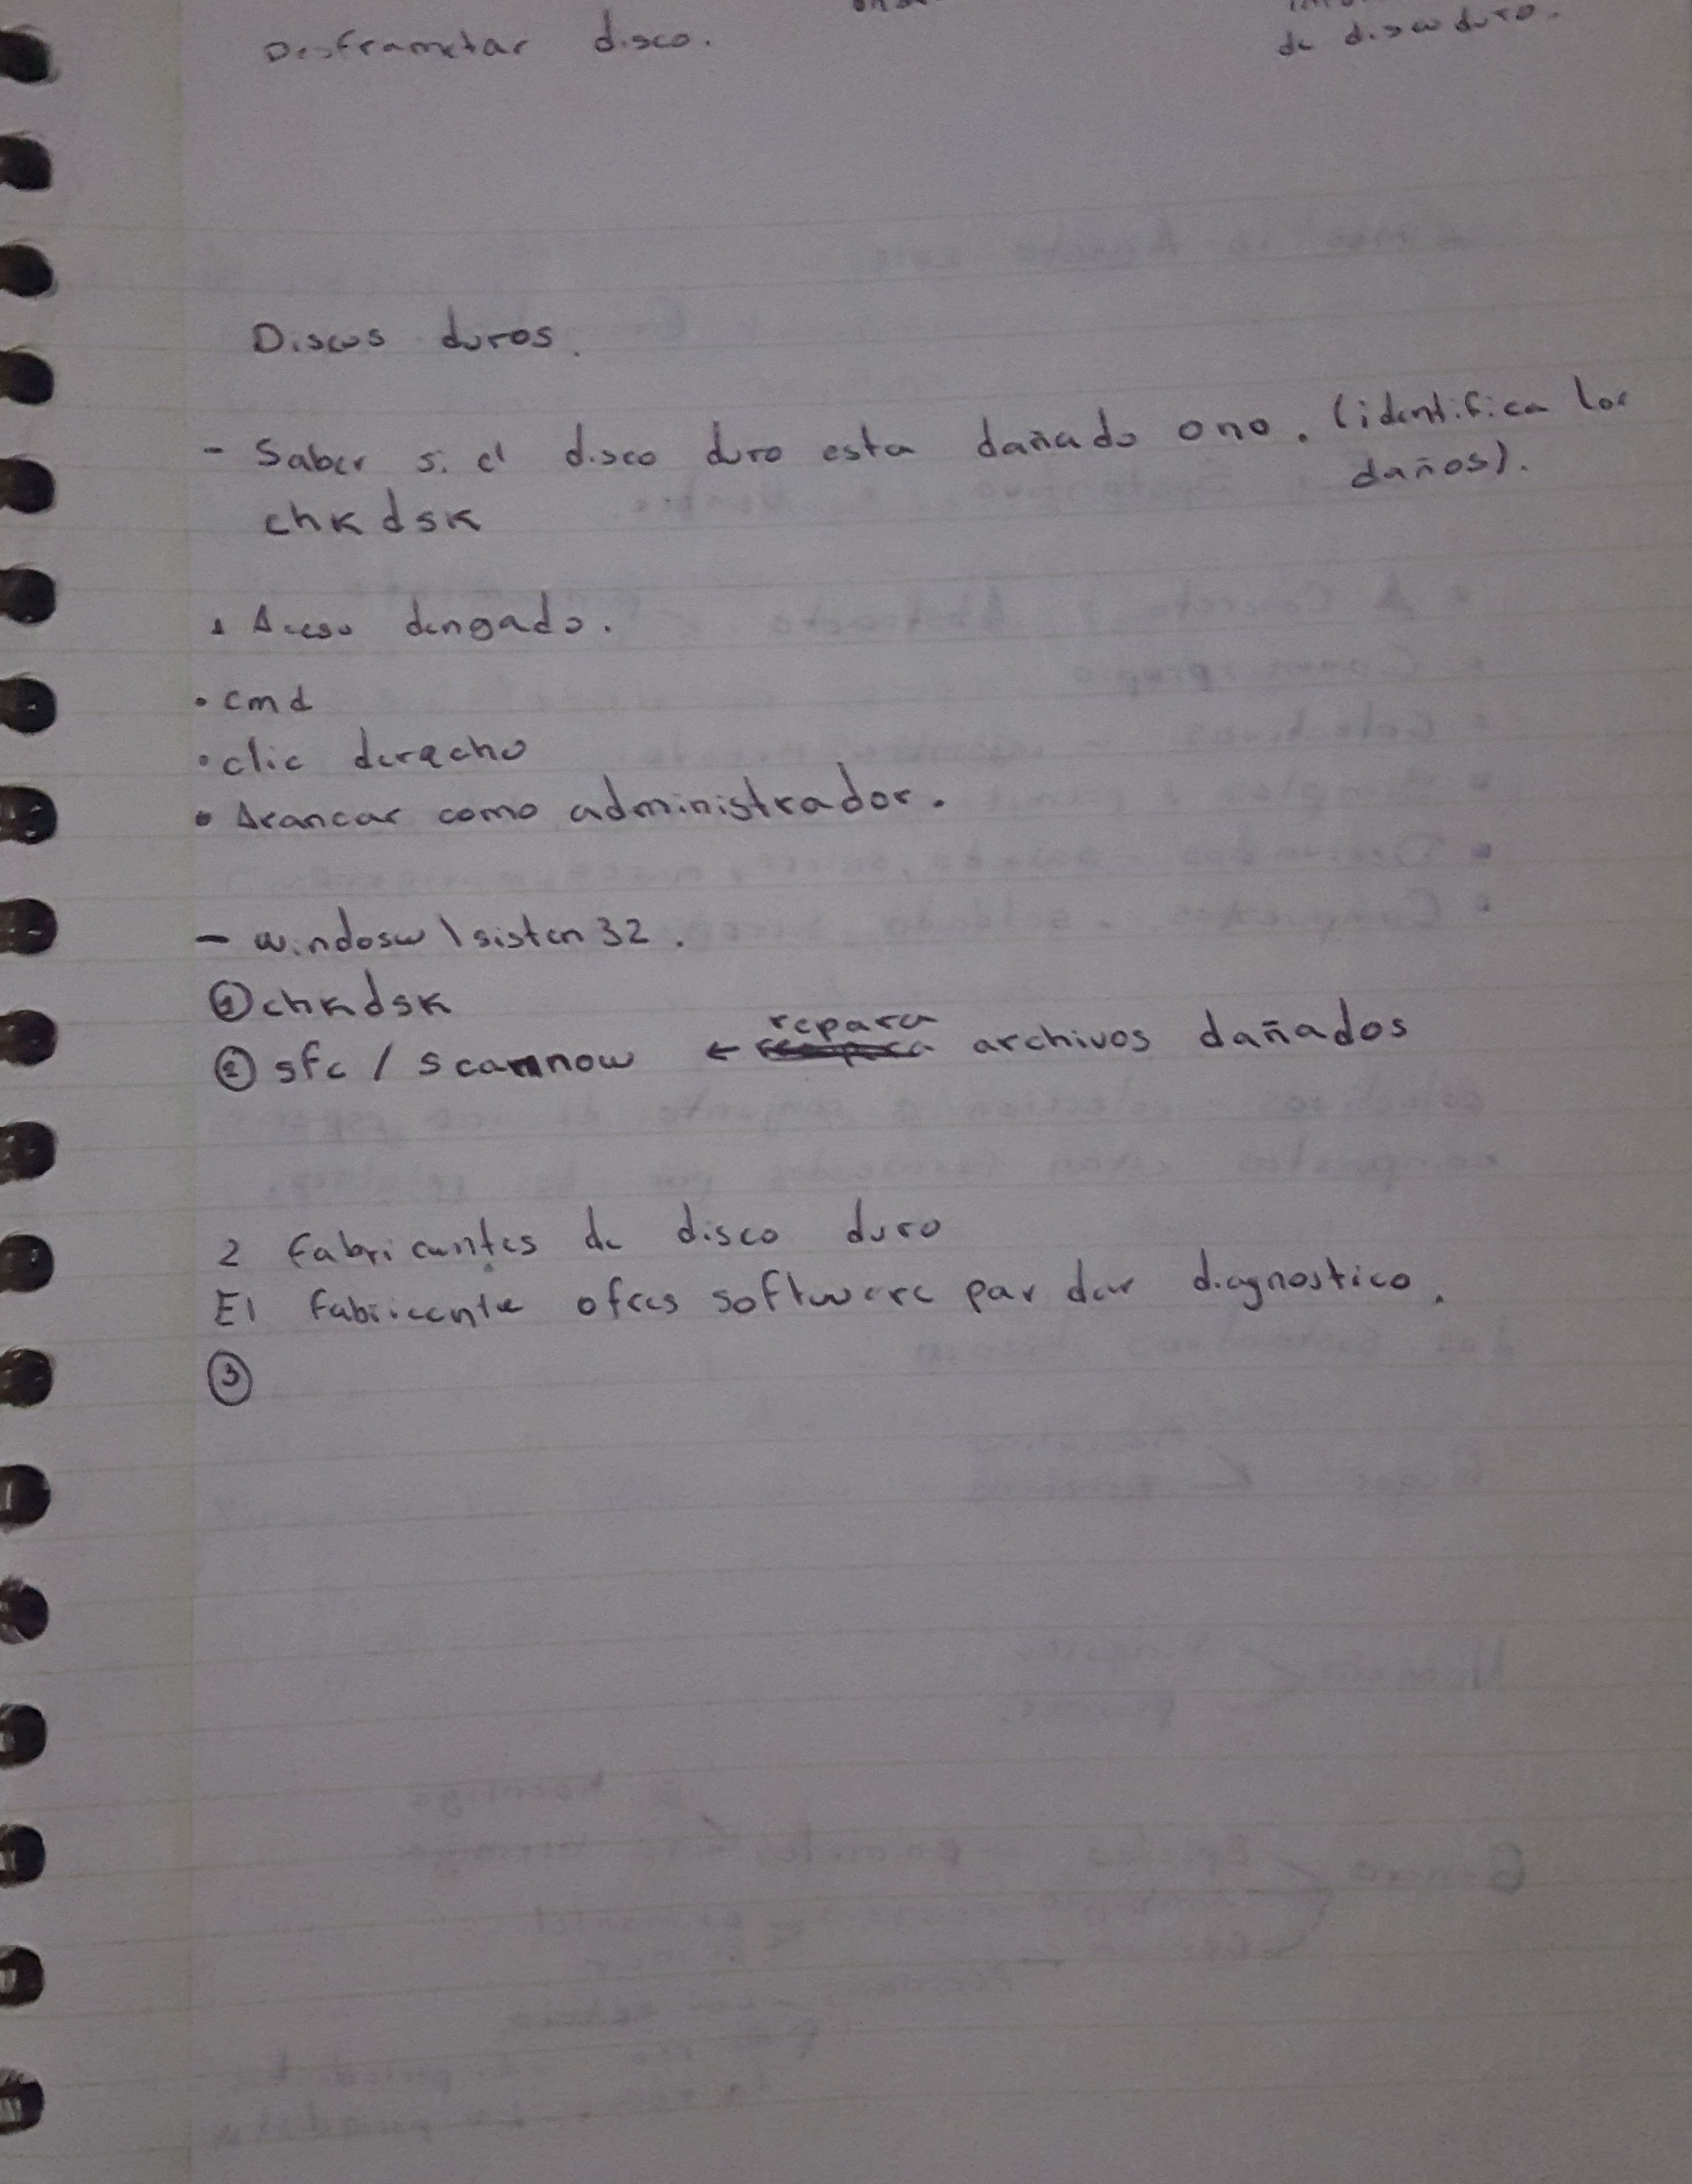 Desframetar disco.
de disco duro.
Discos duros.
- Saber si el disco duro esta dañado o no. (identifica los
daños).
chkdsk
1 Aceso dengado.
• cmd
• clic derecho
• Arancar como administrador.
- windosw \ sisten 32.
① chkdsk
② sfc / scannow ← repara archivos dañados
2 Fabricantes de disco duro
El Fabricante ofres software par dar diagnostico.
③